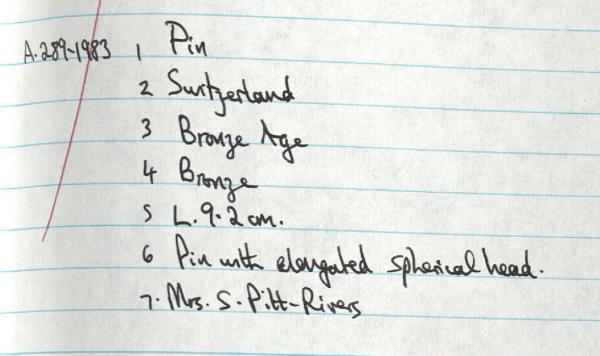 A.289-1983 1 Pin
2 Switzerland
3 Bronze Age
4 Bronze
5 L. 9.2 cm.
6 Pin with elongated spherical head.
7. Mrs. S. Pitt-Rivers